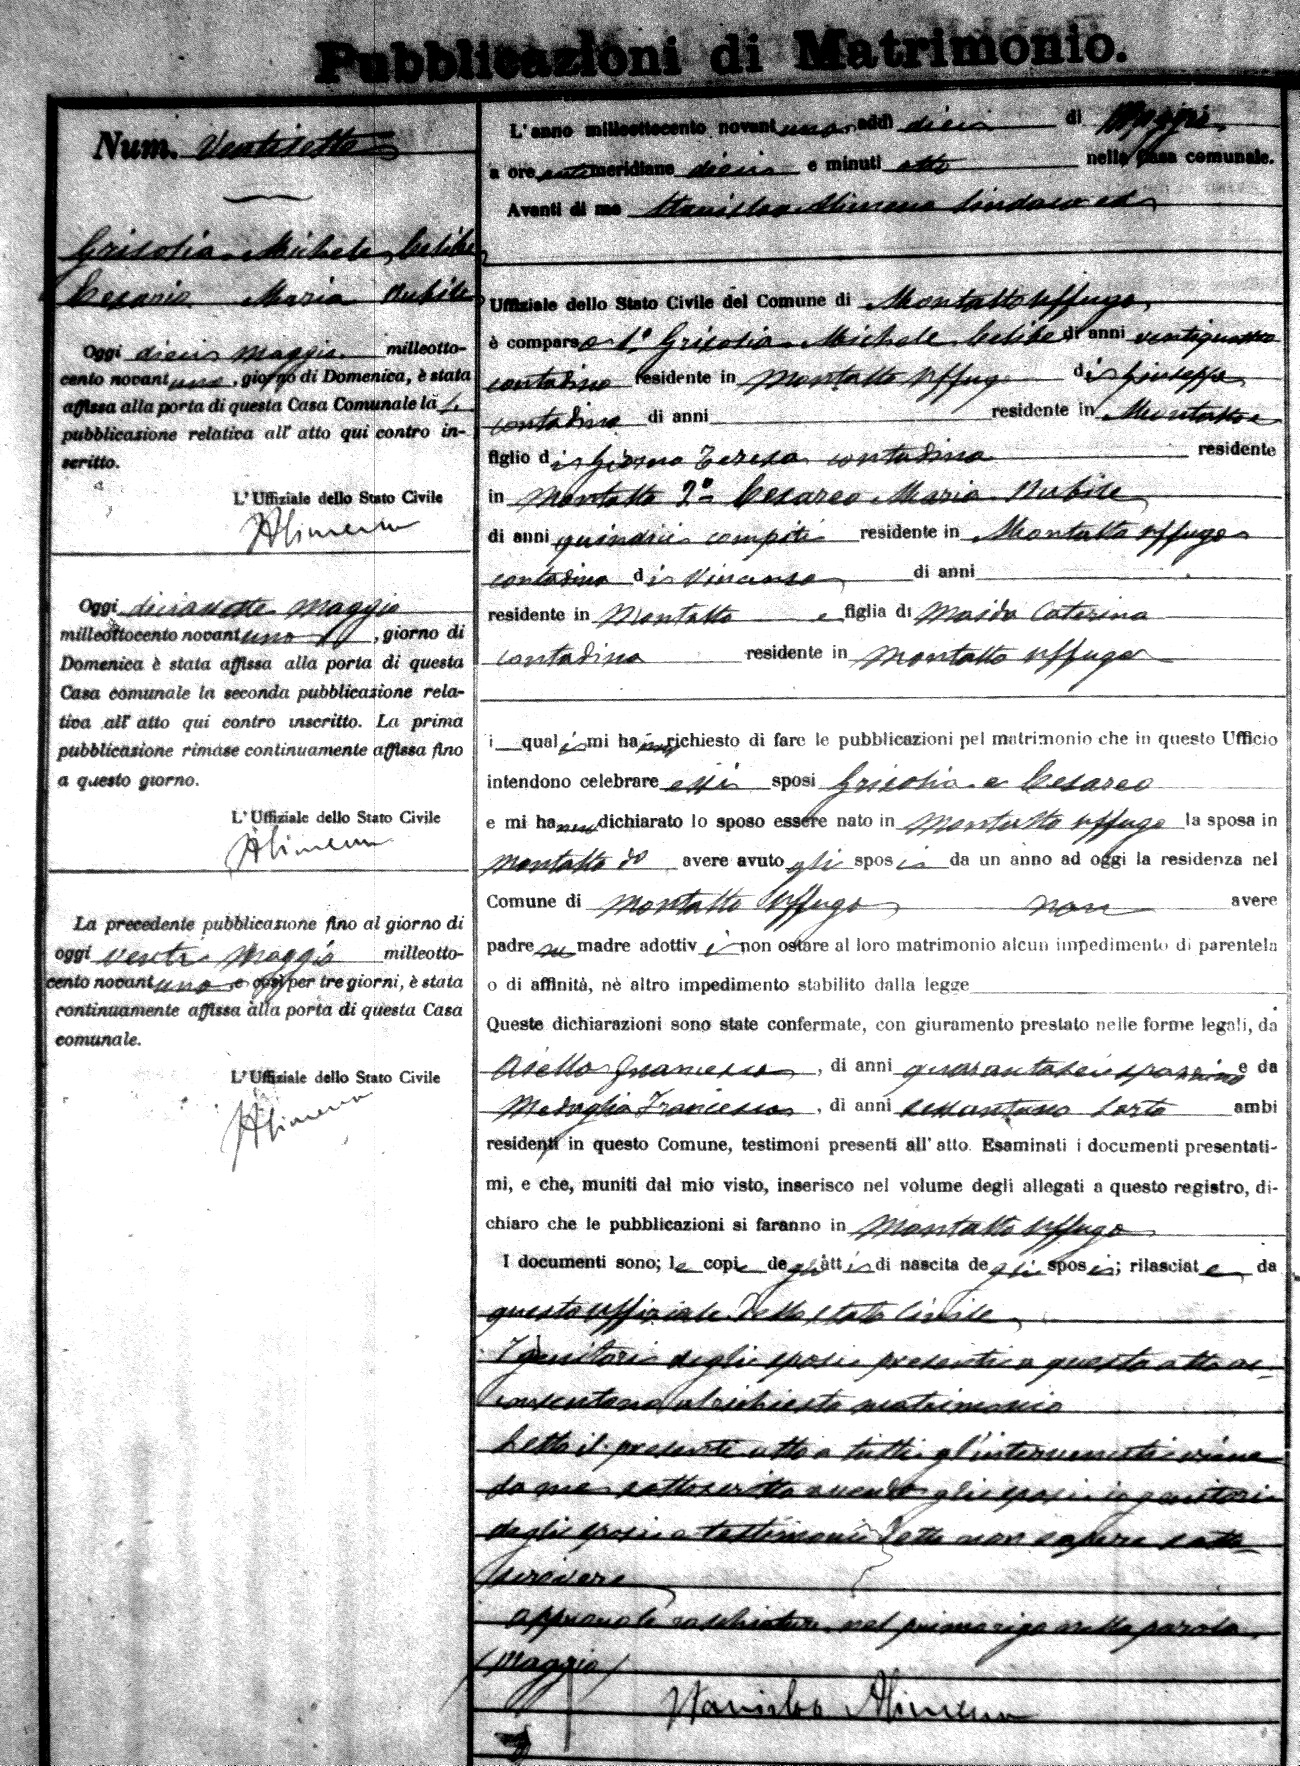 Pubblicazioni di Matrimonio.
Num. Ventisette
Grisolia Michele Celibe
Cesario Maria Nubile
Oggi dieci Maggio milleotto-
cento novantuno, giorno di Domenica, è stata
affissa alla porta di questa Casa Comunale la 1.
pubblicazione relativa all'atto qui contro in-
scritto.
L'Uffiziale dello Stato Civile
SAlimena
Oggi diciasette Maggio
milleottocento novantuno, giorno di
Domenica è stata affissa alla porta di questa
Casa comunale la seconda pubblicazione rela-
tiva all'atto qui contro inscritto. La prima
pubblicazione rimase continuamente affissa fino
a questo giorno.
L'Uffiziale dello Stato Civile
SAlimena
La precedente pubblicazione fino al giorno di
oggi venti Maggio milleotto-
cento novantuno e così per tre giorni, è stata
continuamente affissa alla porta di questa Casa
comunale.
L'Uffiziale dello Stato Civile
SAlimena
L'anno milleottocento novantuno addì dieci di Maggio
a ore antimeridiane dieci e minuti otto nella Casa comunale.
Avanti di me Stanislao Alimena Sindaco ed
Uffiziale dello Stato Civile del Comune di Montalto Uffugo,
è comparso 1º Grisolia Michele Celibe di anni ventiquattro
contadino residente in Montalto Uffugo di Giuseppe
contadino di anni residente in Montalto e
figlio di Teresa contadina residente
in Montalto 2º Cesareo Maria Nubile
di anni quindici compiti residente in Montalto Uffugo
contadina di Vincenzo di anni
residente in Montalto e figlia di Maida Caterina
contadina residente in Montalto Uffugo
i quali mi hanno richiesto di fare le pubblicazioni pel matrimonio che in questo Ufficio
intendono celebrare essi sposi Grisolia e Cesareo
e mi hanno dichiarato lo sposo essere nato in Montalto Uffugo la sposa in
Montalto do avere avuto gli sposi da un anno ad oggi la residenza nel
Comune di Montalto Uffugo non avere
padre nè madre adottivi non ostare al loro matrimonio alcun impedimento di parentela
o di affinità, nè altro impedimento stabilito dalla legge
Queste dichiarazioni sono state confermate, con giuramento prestato nelle forme legali, da
Aiello Francesco, di anni quarantasei spazzino e da
Medaglia Francesco, di anni sessantuno sarto ambi
residenti in questo Comune, testimoni presenti all'atto. Esaminati i documenti presentati-
mi, e che, muniti dal mio visto, inserisco nel volume degli allegati a questo registro, di-
chiaro che le pubblicazioni si faranno in Montalto Uffugo
I documenti sono; le copie degli atti di nascita degli sposi; rilasciate da
questo Uffiziale dello stato Civile
I genitori degli sposi presenti a questo atto ac-
consentono al richiesto matrimonio
Letto il presente atto a tutti gl'intervenuti viene
da me sottoscritto avendo gli sposi i genitori
degli sposi e testimoni detto non sapere sotto-
scrivere
Approvo la raschiatura nel primo rigo nella parola
(Maggio)
Stanislao Alimena